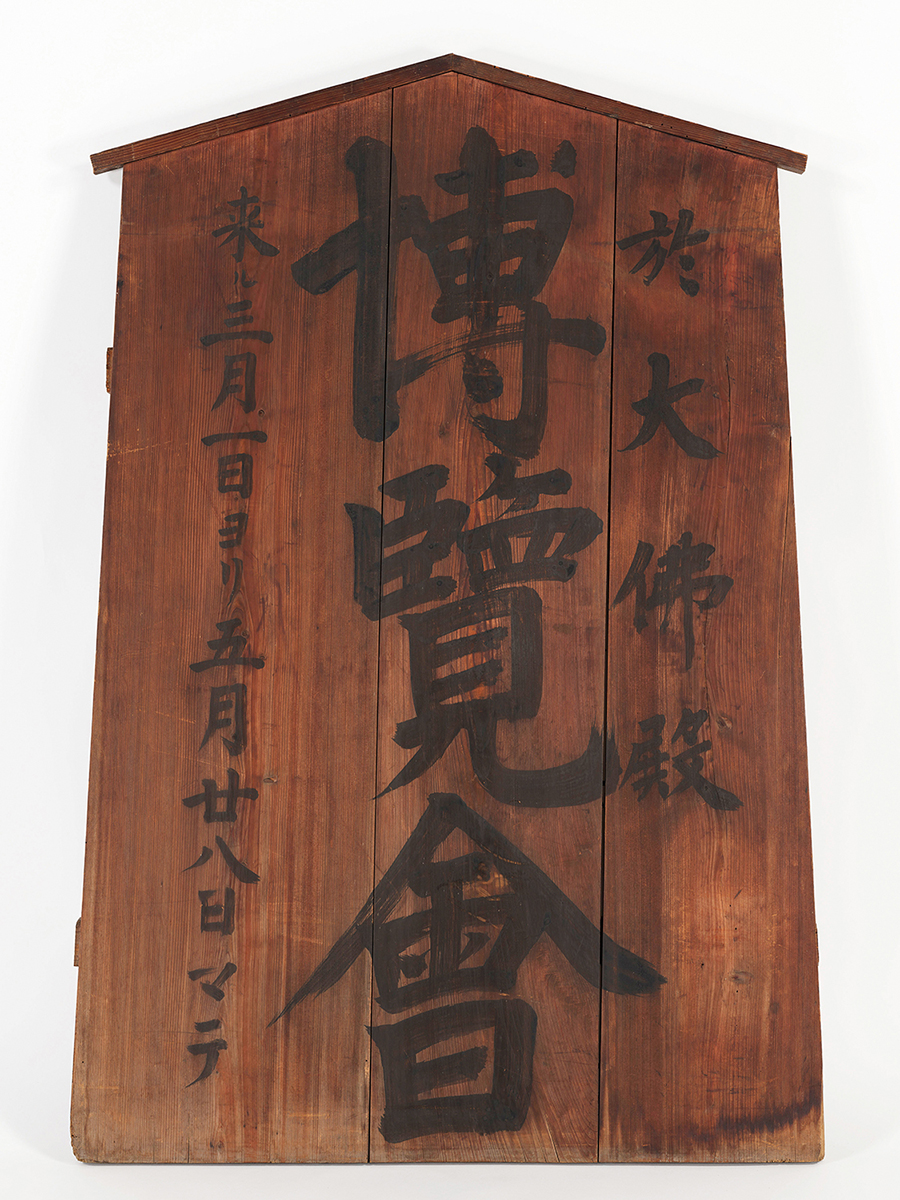 於大佛殿
博覽會
来ル三月一日ヨリ五月廿八日マテ